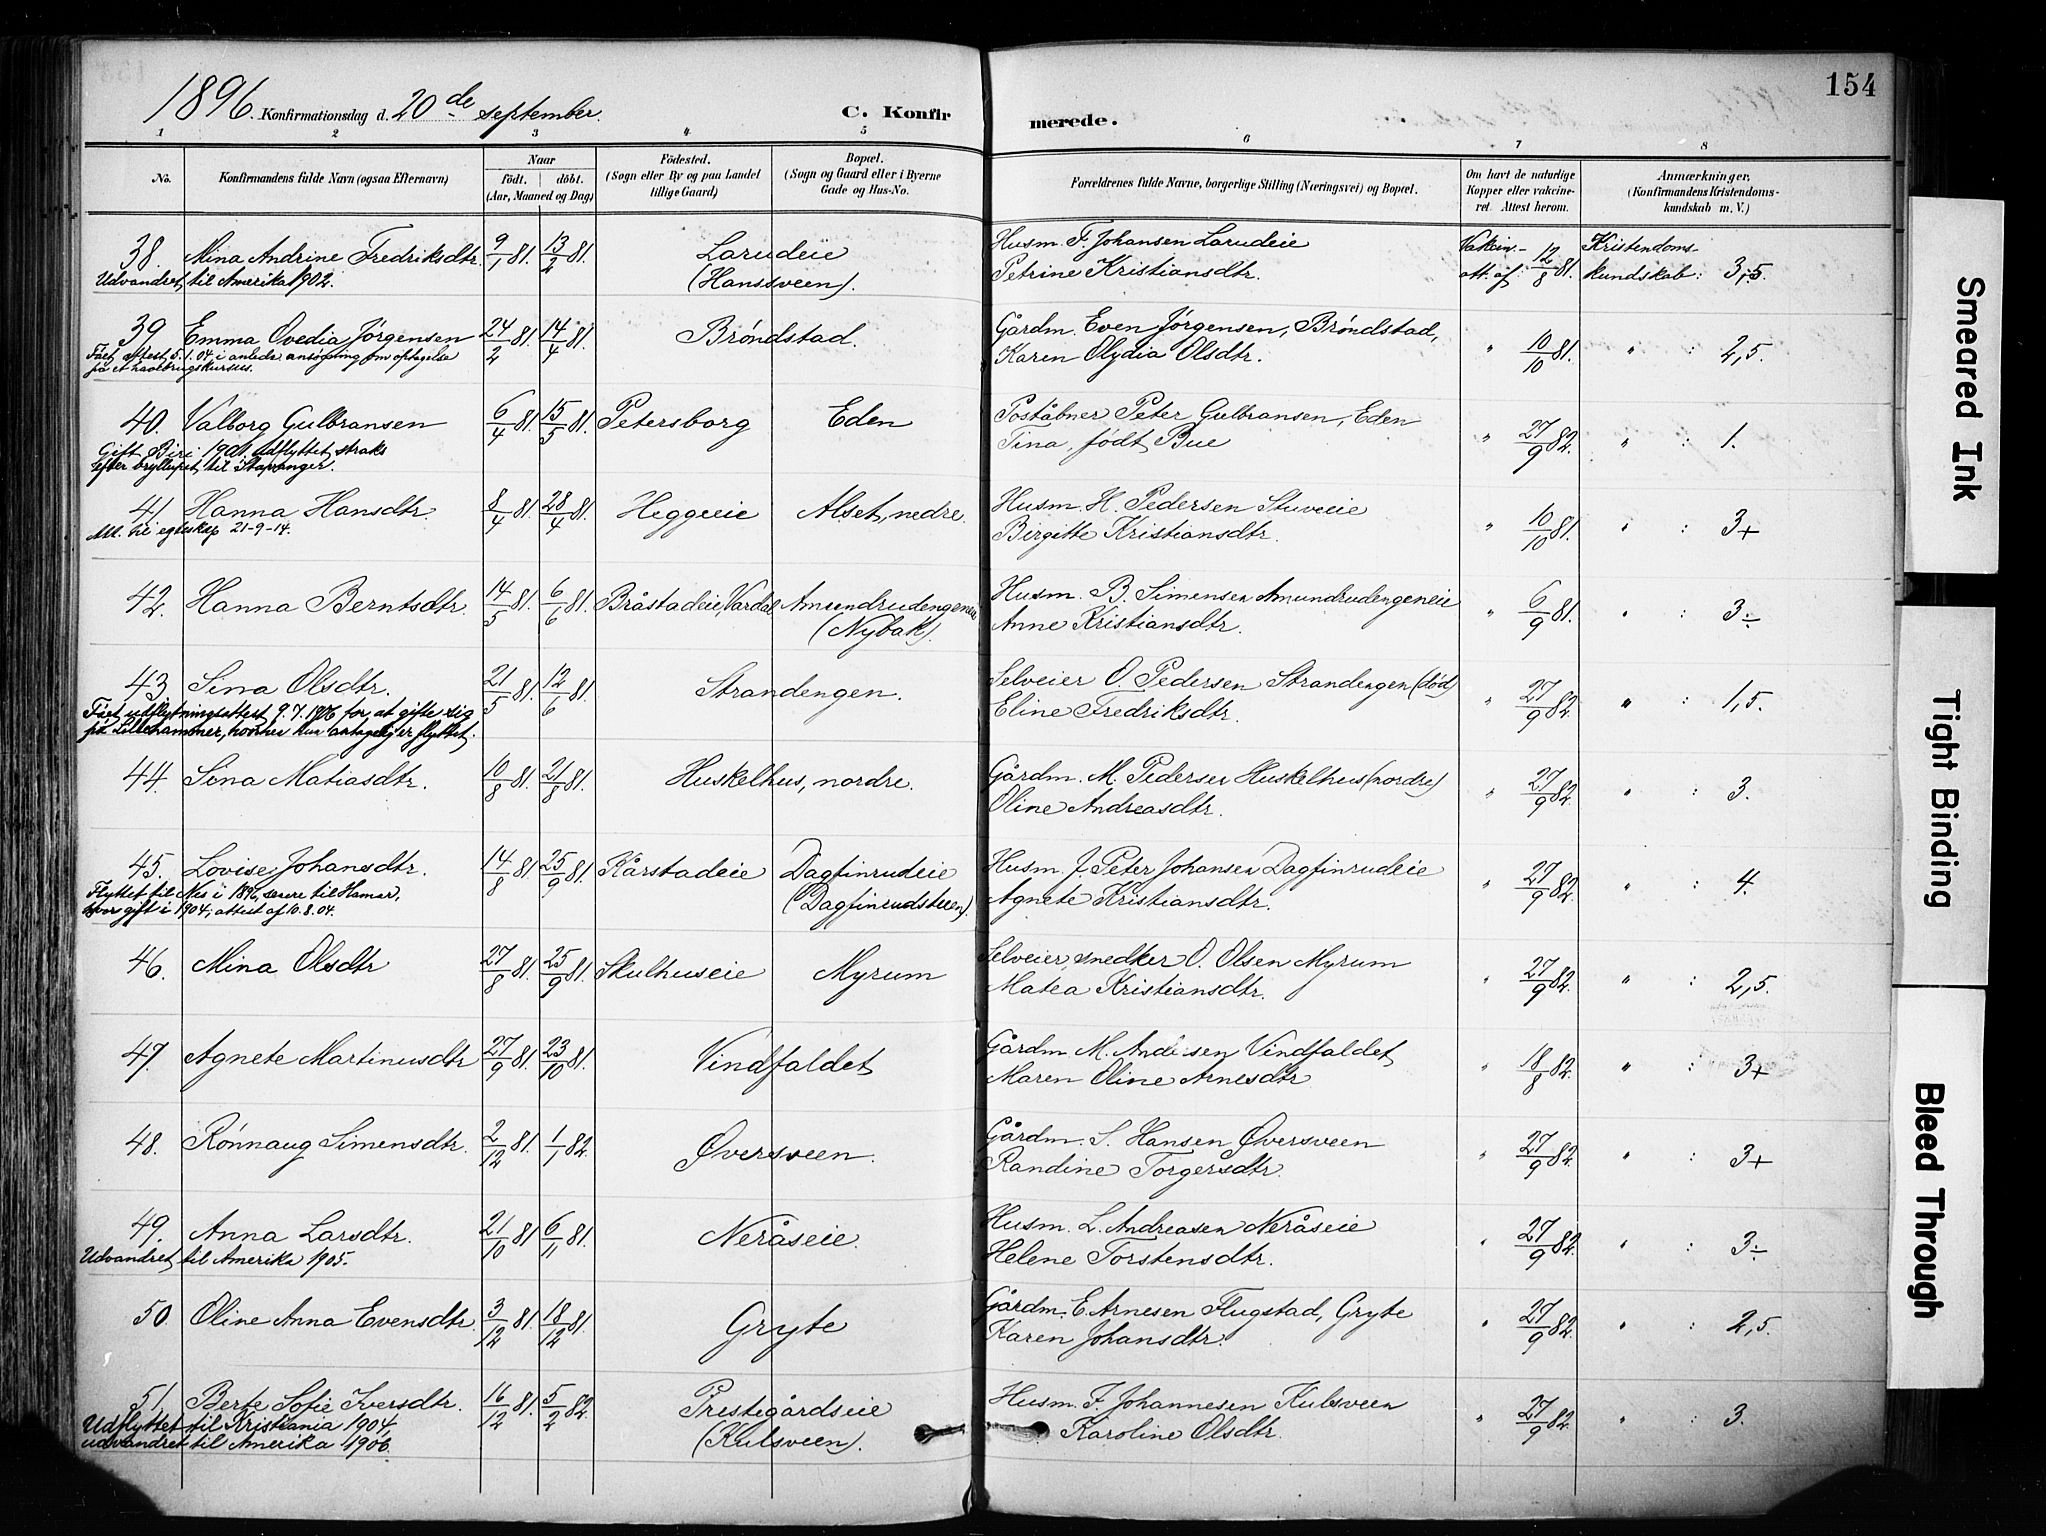 154
1896. Konfirmationsdag d. 20de september. C. Konfir merede.
1 2 3 4 5 6 7 8
No. Konfirmandens fulde Navn (ogsaa Efternavn) Naar født. døbt. (Aar, Maaned og Dag) Fødested. (Sogn eller By og paa Landet tillige Gaard) Bopæl. (Sogn og Gaard eller i Byerne Gade og Hus-No. Forældrenes fulde Navne, borgerlige Stilling (Næringsvei) og Bopæl. Om havt de naturlige Kopper eller vakcineret. Attest herom. Anmærkninger, (Konfirmandens Kristendomskundskab m. V.)
38. Mina Andrine Fredriksdtr. 9/1 81. 13/2 81. Larudeie (Hanssveen). Husm. F. Johansen Larudeie Vakcin. att. af 12/8 81. Kristendoms-
Petrine Kristiansdtr. kundskab: 3,5.
Udvandret til Amerika 1902.
39 Emma Ovedia Jørgensen 24/2 81. 14/4 81. Brøndstad. Gårdm. Even Jørgensen, Brøndstad, " 10/10 81. " : 2,5.
Karen Olydia Olsdtr.
Fået attest 5.1.04 i anledn. ansøgning om optagelse
på et havebrugskursus.
40. Valborg Gulbransen 6/4 81. 15/5 81. Petersborg Eden Poståbner Peter Gulbransen, Eden " 27/9 82. " : 1.
Tina, født Bue
Gift Biri 1901. Udflyttet straks
efter bryllupet til Stavanger.
41. Hanna Hansdtr. 8/4 81. 28/4 81. Heggeeie Alset, nedre. Husm. H. Pedersen Stuveeie " 10/10 81. " : 3+
Birgitte Kristiansdtr.
Att. til egteskap 21-9-14.
42. Hanna Berntsdtr. 14/5 81. 6/6 81. Bråstadeie, Vardal Amundrudengeneie (Nybak). Husm. B. Simensen Amundrudengeneie " 6/9 81. " : 3÷
Anne Kristiansdtr.
43. Sina Olsdtr. 21/5 81. 12/6 81. Strandengen. Selveier O. Pedersen Strandengen (død) " 27/9 82. " : 1,5.
Eline Fredriksdtr.
Fået udflytningsattest 9.7.1906 for at gifte sig
på Lillehammer, hvorhen hun antagelig er flyttet.
44. Sina Matiasdtr. 10/8 81. 21/8 81. Huskelhus, nordre. Gårdm. M. Pedersen Huskelhus (nordre) " 27/9 82. " : 3.
Oline Andreasdtr.
45. Lovise Johansdtr. 14/8 81. 25/9 81. Kårstadeie Dagfinrudeie (Dagfinrudsteen). Husm. J. Peter Johansen Dagfinrudeie " 27/9 82. " : 4.
Agnete Kristiansdtr.
Flyttet til Nes i 1896, senere til Hamar,
hvor gift i 1904; attest af 10.8.04.
46. Mina Olsdtr 27/8 81. 25/9 81. Skulhuseie Myrum Selveier, snedker O. Olsen Myrum " 27/9 82. " : 2,5.
Matea Kristiansdtr.
47. Agnete Martinusdtr 27/9 81. 23/10 81. Vindfaldet Gårdm. M. Andersen Vindfaldet " 18/8 82. " : 3+
Maren Oline Arnesdtr
48. Rønnaug Simensdtr. 2/12 81. 1/1 82. Øversveen. Gårdm. S. Hansen Øversveen " 27/9 82. " : 3+
Randine Torgersdtr.
49. Anna Larsdtr. 21/10 81. 6/11 81. Neråseie. Husm. L. Andreasen Neråseie " 27/9 82. " : 3÷
Helene Torstensdtr.
Udvandret til Amerika 1905.
50. Oline Anna Evensdtr. 3/12 81. 18/12 81. Gryte Gårdm. E. Arnesen Flugstad, Gryte " 27/9 82. " : 2,5.
Karen Johansdtr.
51. Berte Sofie Iversdtr. 16/12 81. 5/2 82. Prestegårdseie (Kulsveen). Husm. I. Johannesen Kulsveen " 27/9 82. " : 3.
Karoline Olsdtr.
Udflyttet til Kristiania 1904,
udvandret til Amerika 1906.
Smeared Ink
Tight Binding
Bleed Through